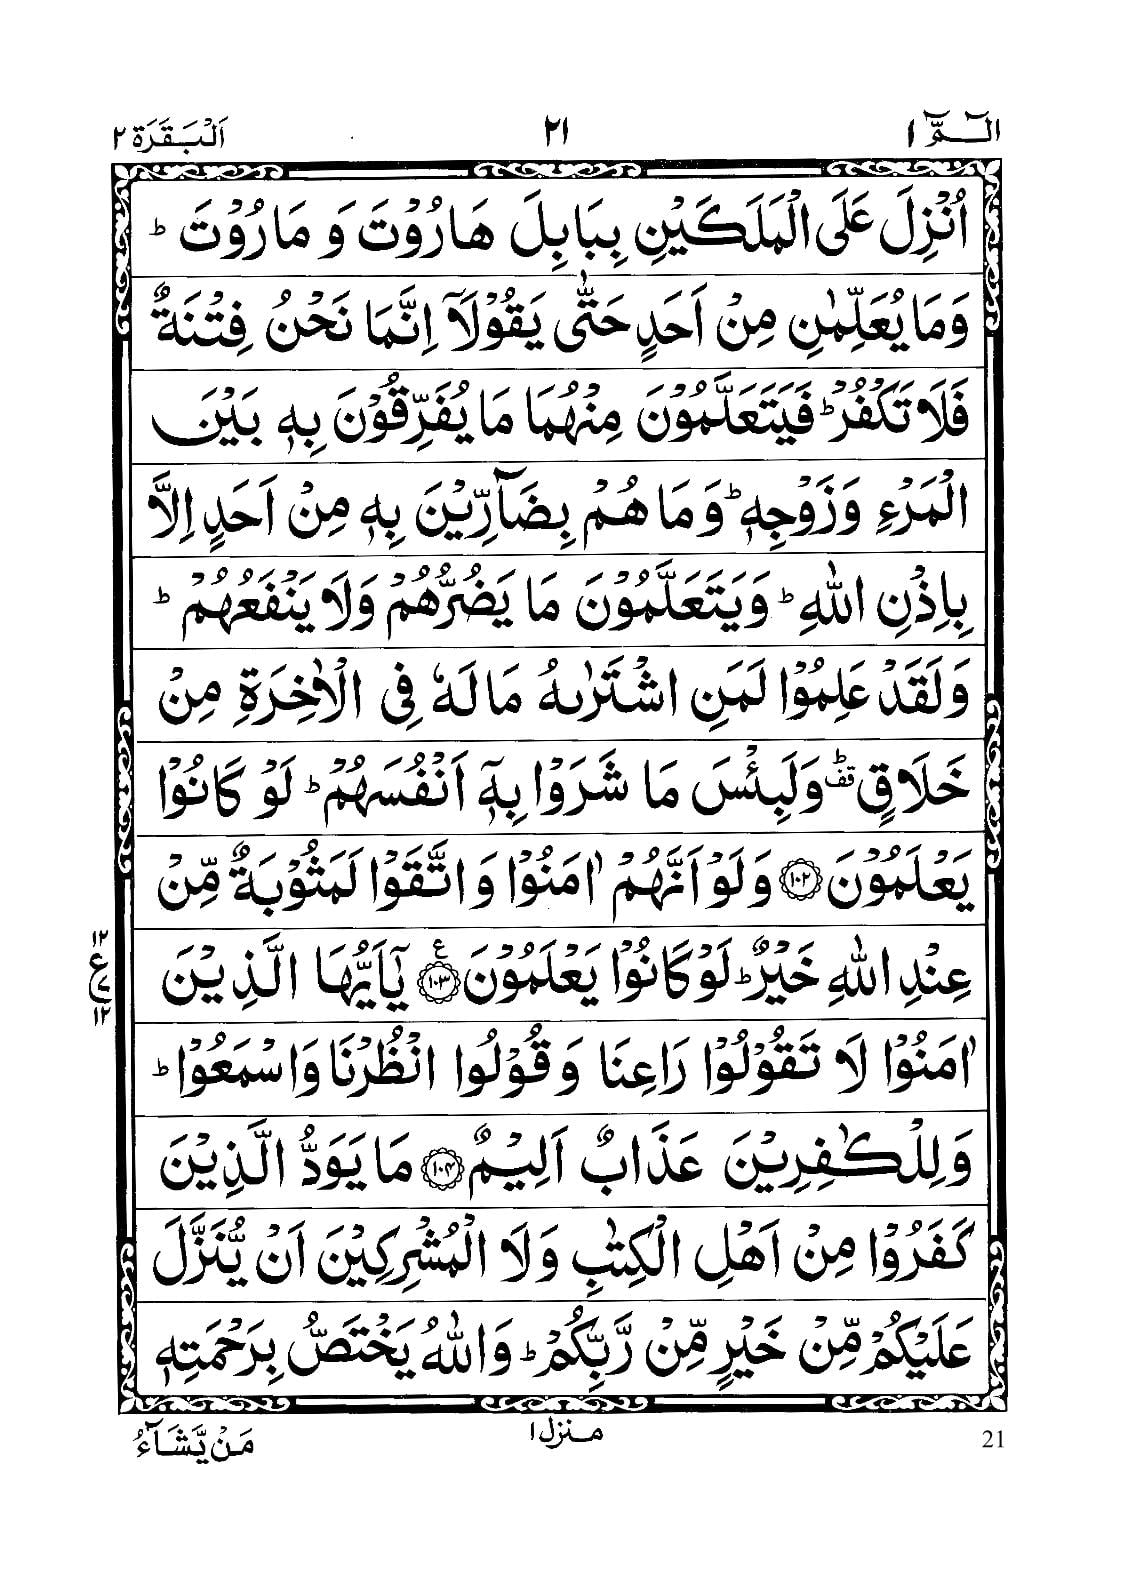 الٓمّٓ ١ ٢١ اَلْبَقَرَة ٢
اُنْزِلَ عَلَى الْمَلَكَيْنِ بِبَابِلَ هَارُوْتَ وَ مَارُوْتَ ؕ
وَمَا يُعَلِّمٰنِ مِنْ اَحَدٍ حَتّٰى يَقُوْلَاۤ اِنَّمَا نَحْنُ فِتْنَةٌ
فَلَا تَكْفُرْ ؕ فَيَتَعَلَّمُوْنَ مِنْهُمَا مَا يُفَرِّقُوْنَ بِهٖ بَيْنَ
الْمَرْءِ وَزَوْجِهٖ ؕ وَمَا هُمْ بِضَآرِّيْنَ بِهٖ مِنْ اَحَدٍ اِلَّا
بِاِذْنِ اللّٰهِ ؕ وَيَتَعَلَّمُوْنَ مَا يَضُرُّهُمْ وَلَا يَنْفَعُهُمْ ؕ
وَلَقَدْ عَلِمُوْا لَمَنِ اشْتَرٰىهُ مَا لَهٗ فِى الْاٰخِرَةِ مِنْ
خَلَاقٍ ؕ قف وَلَبِئْسَ مَا شَرَوْا بِهٖۤ اَنْفُسَهُمْ ؕ لَوْ كَانُوْا
يَعْلَمُوْنَ ﴿١٠٢﴾ وَلَوْ اَنَّهُمْ اٰمَنُوْا وَاتَّقَوْا لَمَثُوْبَةٌ مِّنْ
عِنْدِ اللّٰهِ خَيْرٌ ؕ لَوْ كَانُوْا يَعْلَمُوْنَ ﴿١٠٣﴾ ع يٰۤاَيُّهَا الَّذِيْنَ
١٢
ع
٧
١٢
اٰمَنُوْا لَا تَقُوْلُوْا رَاعِنَا وَقُوْلُوا انْظُرْنَا وَاسْمَعُوْا ؕ
وَلِلْكٰفِرِيْنَ عَذَابٌ اَلِيْمٌ ﴿١٠٤﴾ مَا يَوَدُّ الَّذِيْنَ
كَفَرُوْا مِنْ اَهْلِ الْكِتٰبِ وَلَا الْمُشْرِكِيْنَ اَنْ يُّنَزَّلَ
عَلَيْكُمْ مِّنْ خَيْرٍ مِّنْ رَّبِّكُمْ ؕ وَاللّٰهُ يَخْتَصُّ بِرَحْمَتِهٖ
21 منزل ١ مَنْ يَّشَآءُ